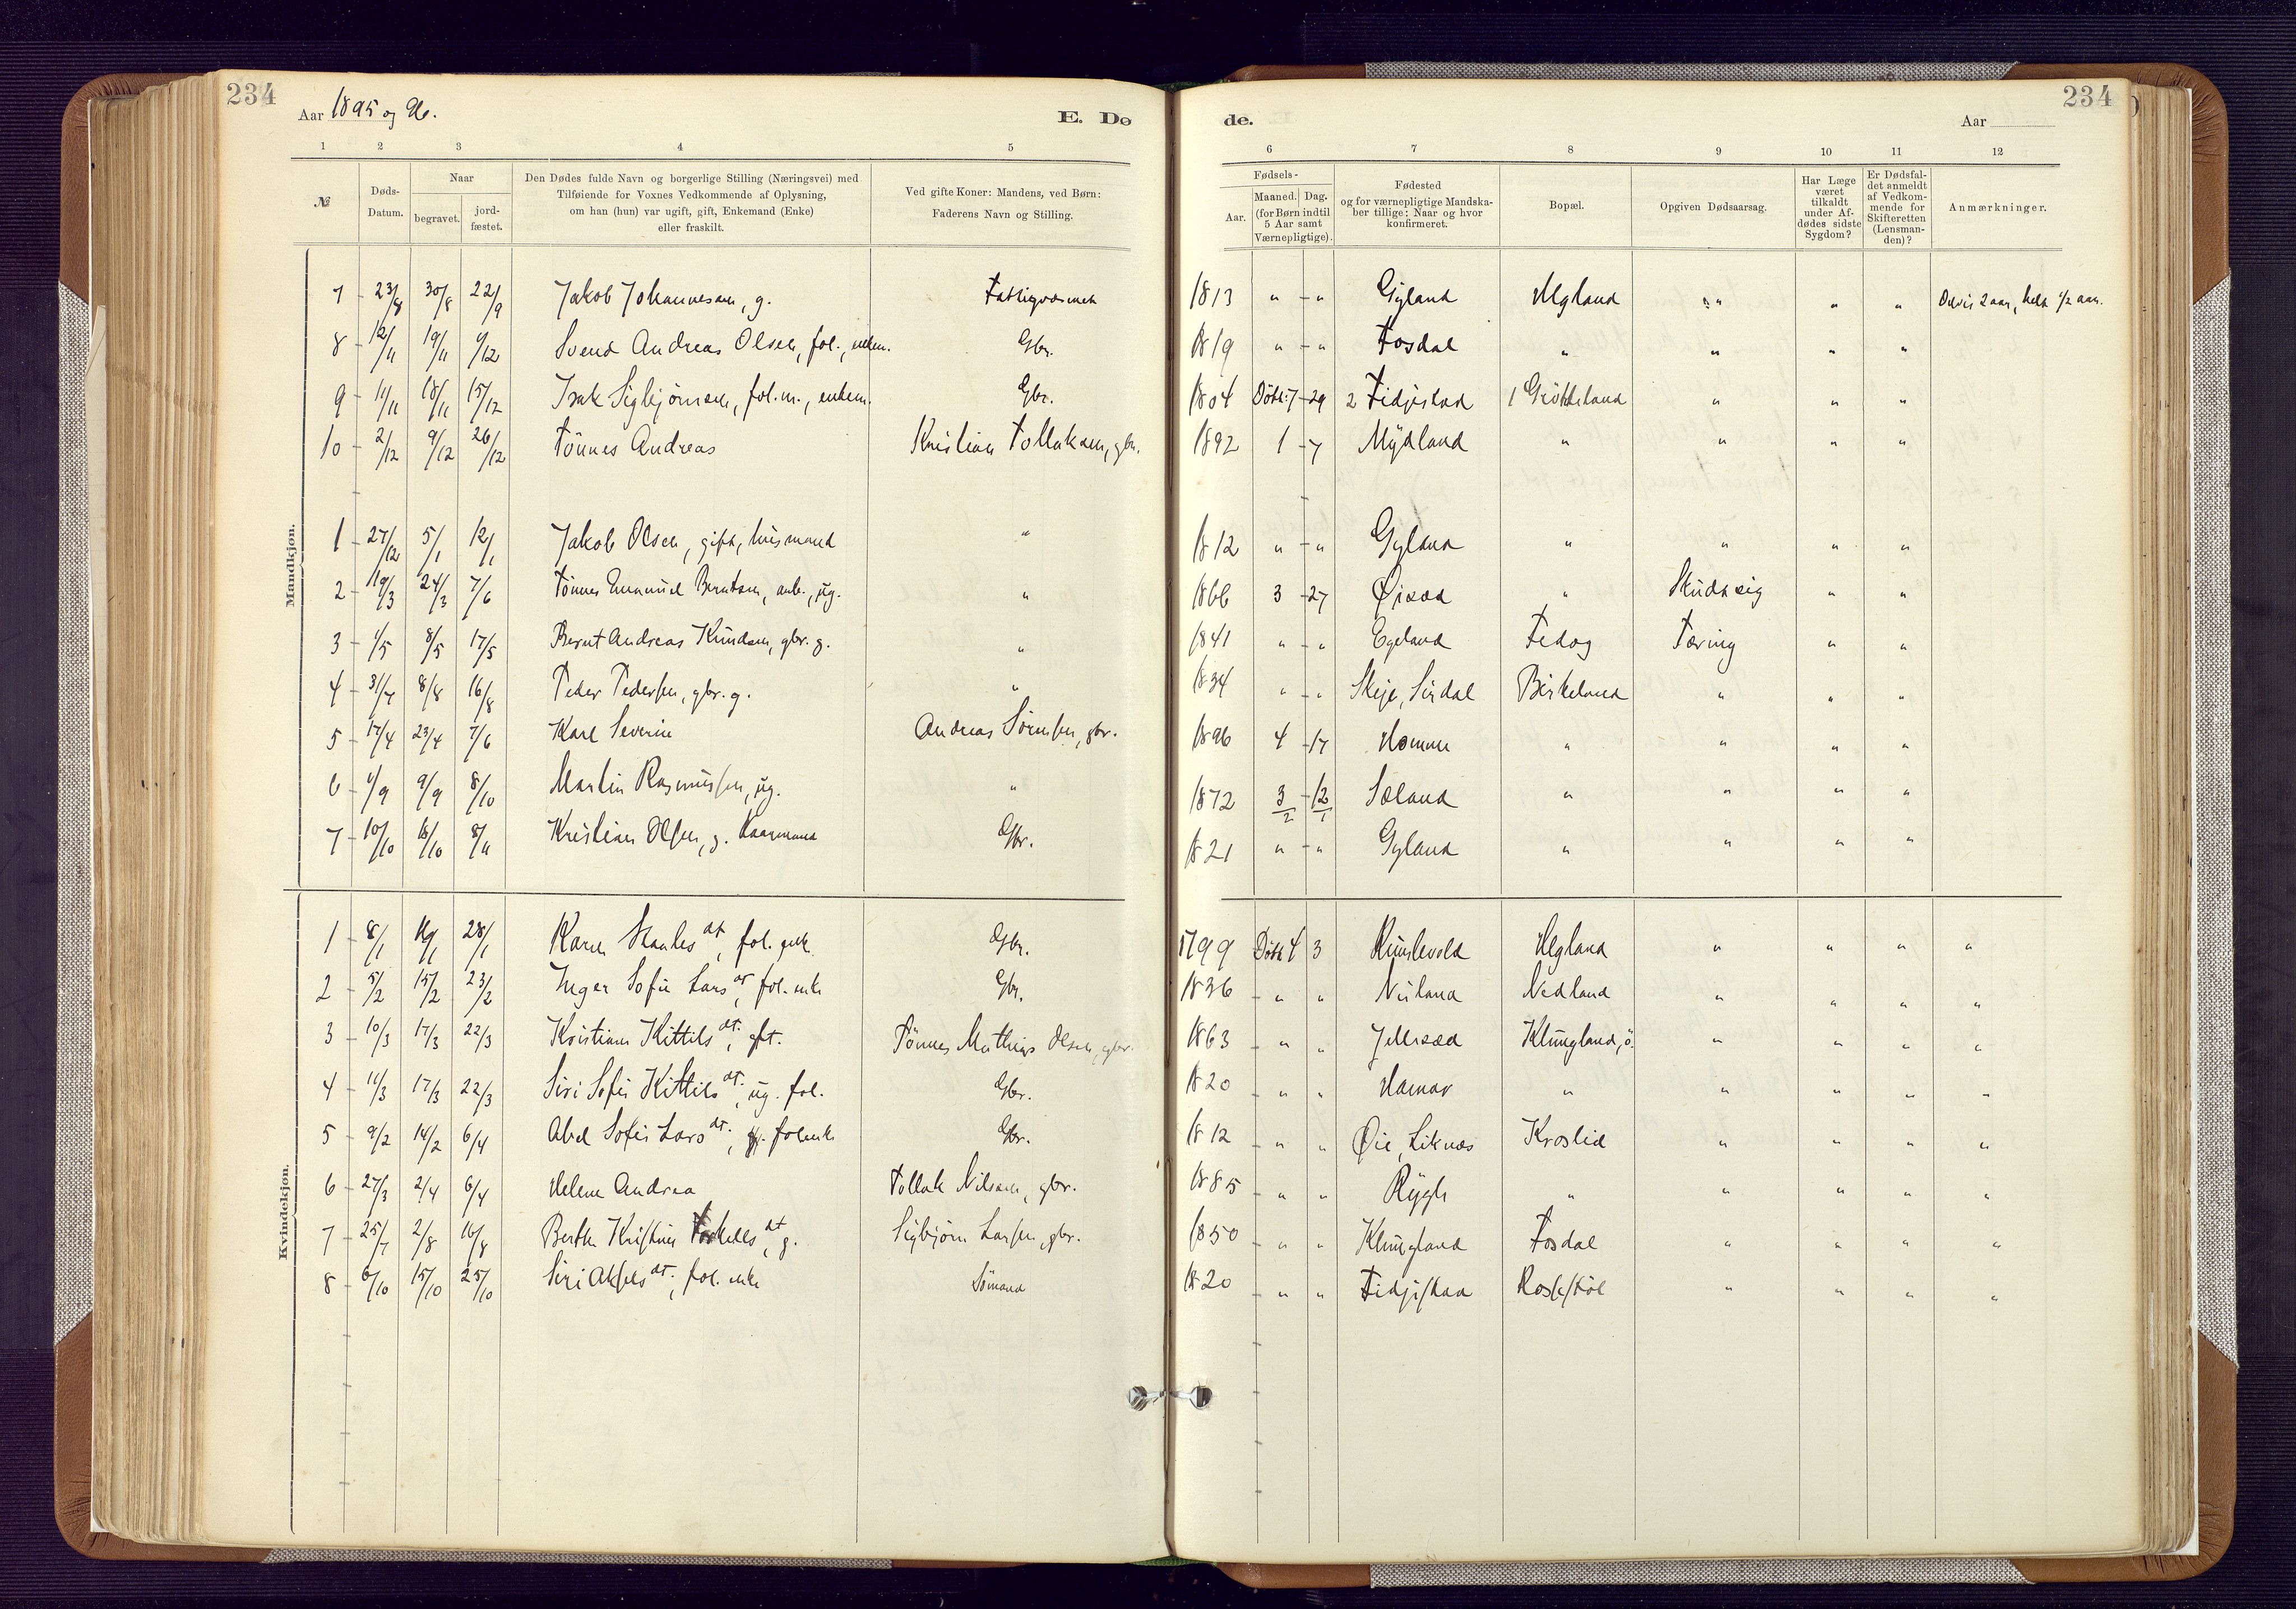 234
Aar 1895 og 96.
E. Dø
de.
Aar
234
1 2 3 4 5
6 7 8 9 10 11 12
№
Døds-Datum.
Naar
begravet.
jord-fæstet.
Den Dødes fulde Navn og borgerlige Stilling (Næringsvei) med
Tilføiende for Voxnes Vedkommende af Oplysning,
om han (hun) var ugift, gift, Enkemand (Enke)
eller fraskilt.
Ved gifte Koner: Mandens, ved Børn:
Faderens Navn og Stilling.
Fødsels-
Aar.
Maaned. Dag.
(for Børn indtil
5 Aar samt
Værnepligtige).
Fødested
og for værnepligtige Mandska-
ber tillige: Naar og hvor
konfirmeret.
Bopæl.
Opgiven Dødsaarsag.
Har Læge
været
tilkaldt
under Af-
dødes sidste
Sygdom?
Er Dødsfal-
det anmeldt
af Vedkom-
mende for
Skifteretten
(Lensman-
den)?
Anmærkninger.
Mandkjøn.
7 - 23/8 30/8 22/9 Jakob Johannesen, g. Fattigvæsenet 1813 " - " Gyland Helgland " " " Delvis 2 aar, helt 1/2 aar.
8 - 12/11 19/11 4/12 Svend Andreas Olsen, fol., enkem. Gbr. 1819 " - " Fosdal " " " "
9 - 11/11 18/11 15/12 Isak Sigbjørnsen, fol.m., enkem. Gbr. 1804 Døbt: 7 - 29 2 Fidjestad 1 Grøtteland " " "
10 - 2/12 9/12 26/12 Tønnes Andreas Kristian Tollaksen, gbr. 1892 1 - 7 Mydland " " " "
1 - 27/12 5/1 12/1 Jakob Olsen, gift, husmand " 1812 " - " Gyland " " " "
2 - 19/3 24/3 7/6 Tønnes Emanuel Berntsen, arb., ug. " 1866 3 - 27 Øisæd " Skudt sig " "
3 - 1/5 8/5 17/5 Bernt Andreas Knudsen, gbr. g. " 1841 " - " Egeland Fedog Tæring " "
4 - 31/7 8/8 16/8 Peder Pedersen, gbr. g. " 1834 " - " Skeje, Sirdal Birkeland " " "
5 - 17/4 23/4 7/6 Karl Severin Andreas Sørensen, gbr. 1896 4 - 17 Homme " " " "
6 - 4/9 9/9 8/10 Martin Rasmussen, ug. " 1872 3/2 - 12/1 Sæland " " " "
7 - 10/10 16/10 8/11 Kristian Olsen, g. Kaarmand Gbr. 1821 " - " Gyland " " " "
Kvindekjøn.
1 - 8/1 16/1 28/1 Karen Stanles dt, fol. enk. Gbr. 1799 Døbt 4 3 Kunslevold Helgland " " " "
2 - 5/2 15/2 23/2 Inger Sofie Lars dt, fol. enke Gbr. 1836 " " Nuland Nedland " " " "
3 - 10/3 17/3 22/3 Kristiane Kittils dt., gft. Tønnes Mathias Olsen, gbr. 1863 " " Jellesæd Klungland, ö. " " " "
4 - 11/3 17/3 22/3 Siri Sofie Kittils dt., ug. fol. Gbr. 1820 " " Hamar " " " " "
5 - 9/2 14/2 6/4 Abel Sofie Lars dt., folenke Gbr. 1812 " " Øie, Liknæs Kroslid " " " "
6 - 27/3 2/4 6/4 Helene Andrea Tollak Nilsen, gbr. 1885 " " Rygh " " " " "
7 - 25/7 2/8 16/8 Berthe Kristine Torkells dt, g. Sigbjørn Larsen, gbr. 1850 " " Klungland Fosdal " " " "
8 - 6/10 15/10 25/10 Siri Aksels dt., fol. enke Sömand 1820 " " Fidjestad Rosstøl " " " "